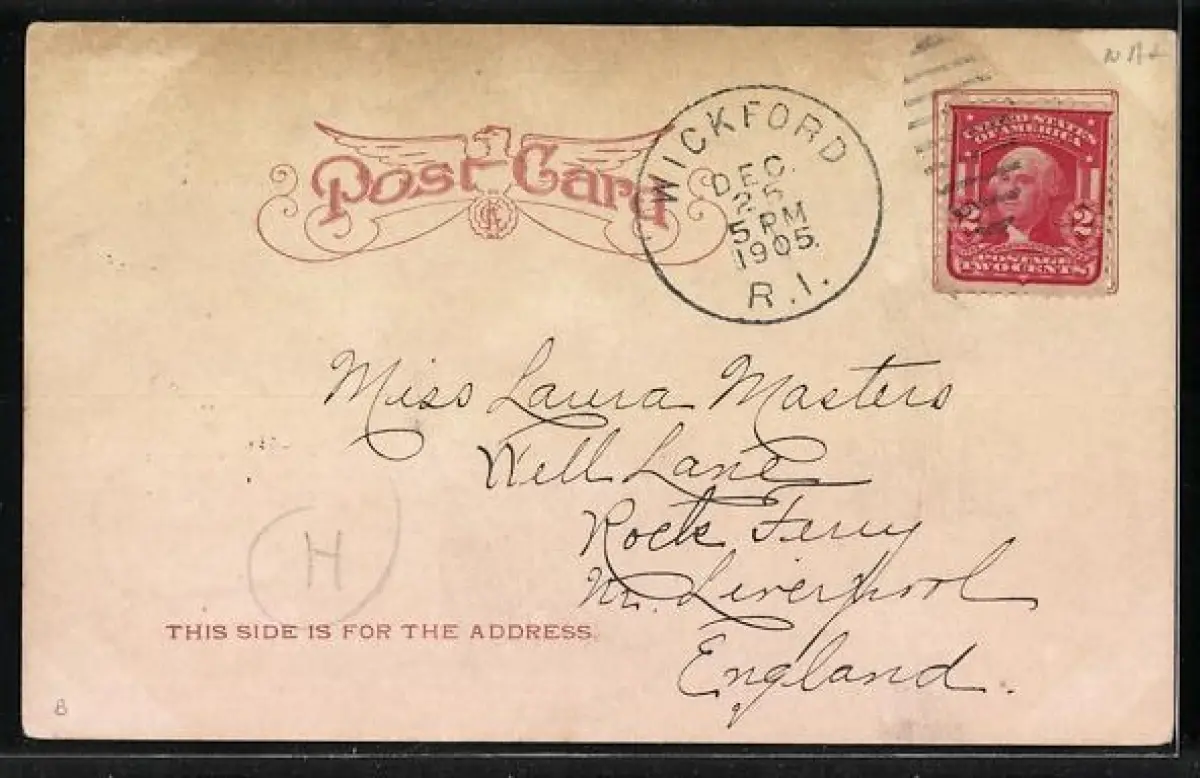 N A+
Post Card
WICKFORD
DEC.
25
5 PM
1905.
R.I.
UNITED STATES
OF AMERICA
2 2
POSTAGE
TWO CENTS
Miss Laura Masters
Well Lane
Rock Ferry
Nr. Liverpool
England.
H
THIS SIDE IS FOR THE ADDRESS.
B